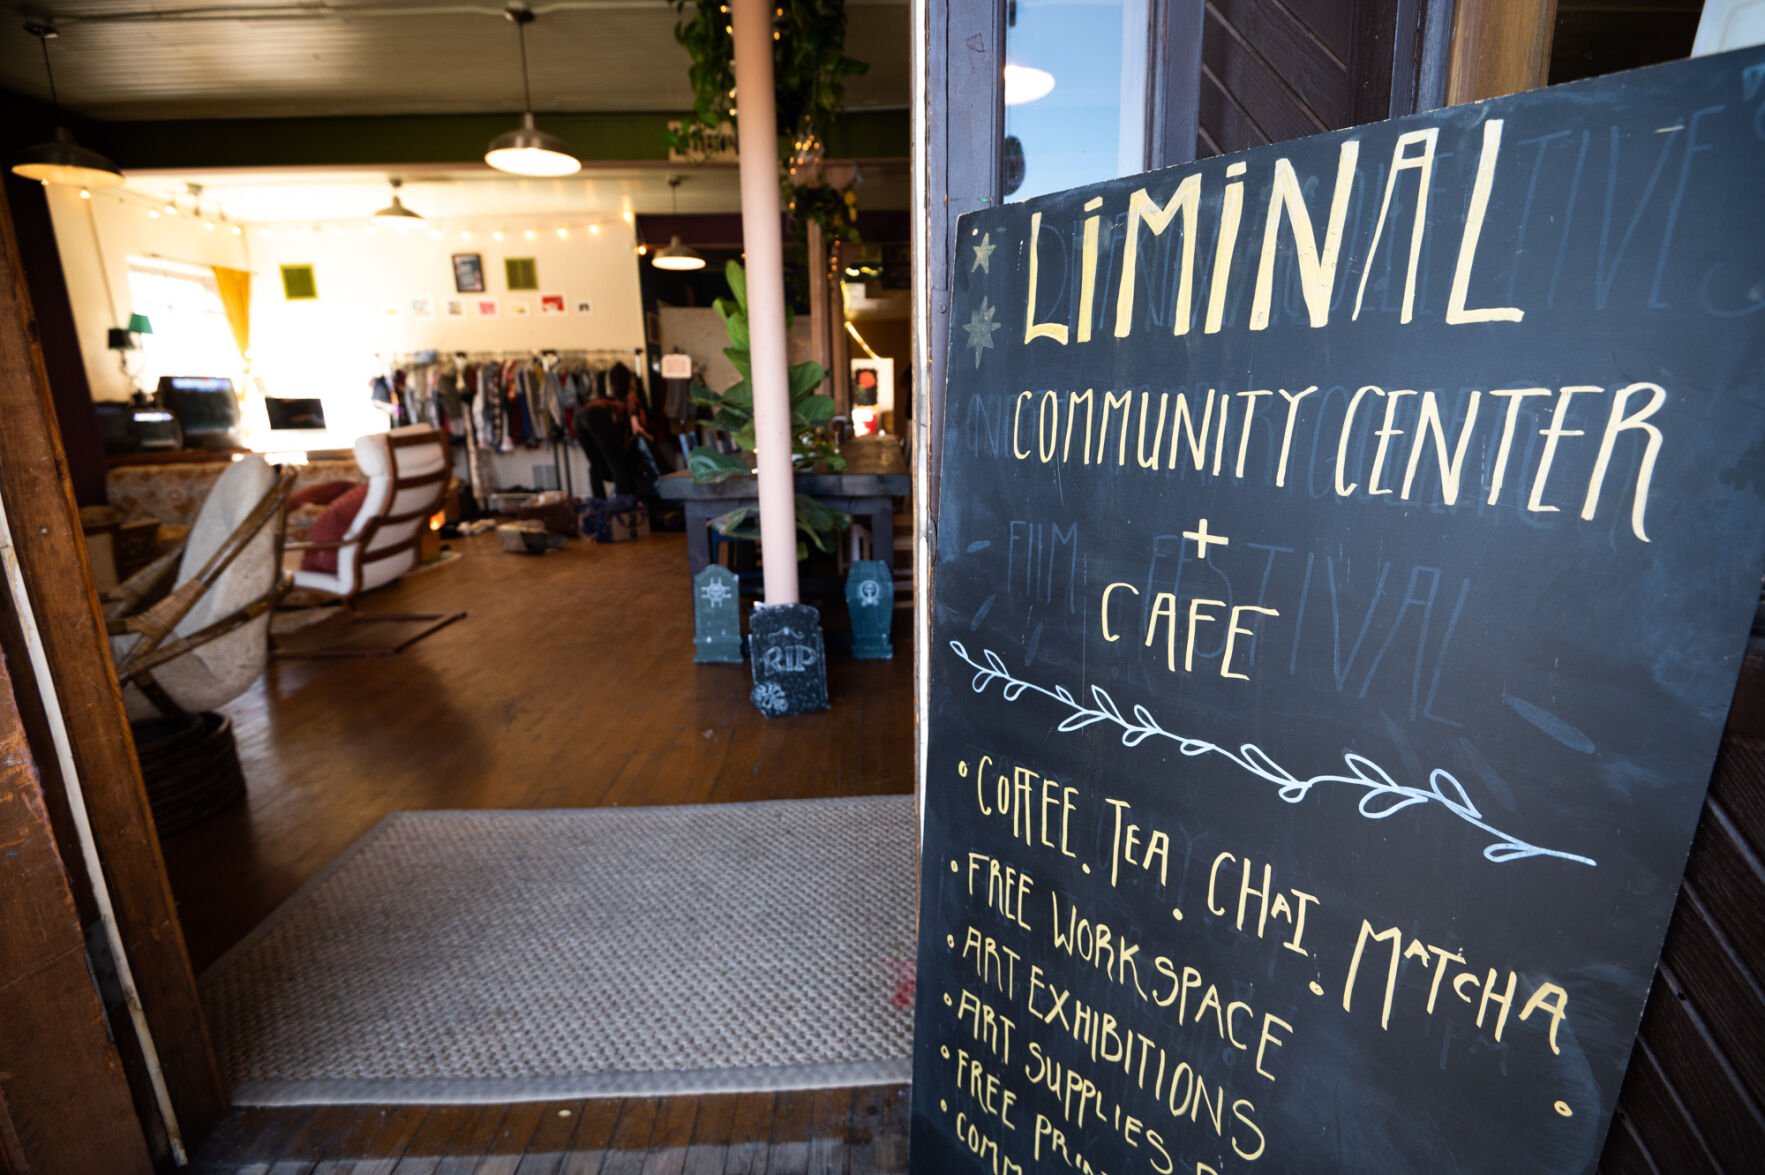 LiMiNAL
COMMUNITY CENTER
+
CAFE
• COFFEE. TEA. CHAI. MATCHA.
• FREE WORKSPACE
• ART EXHIBITIONS
• ART SUPPLIES
• FREE
•
FILM FESTIVAL
RIP